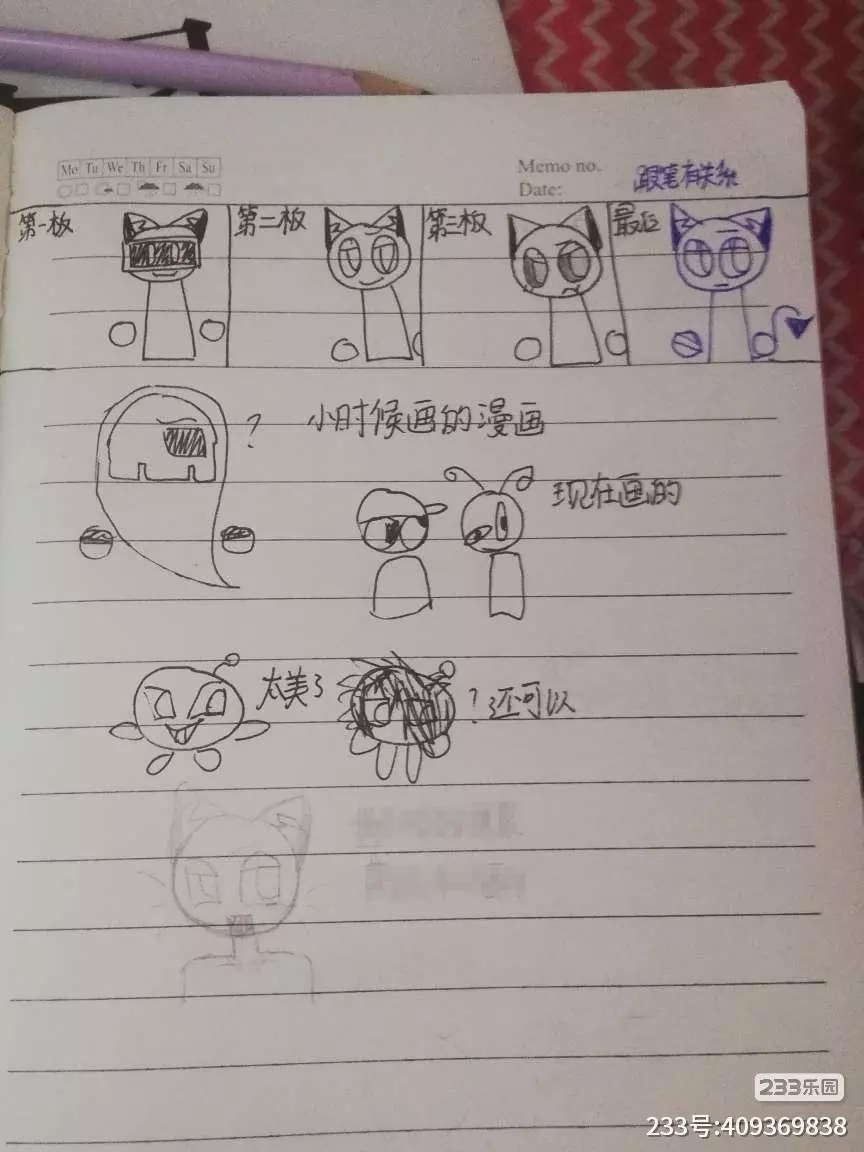 Mo Tu We Th Fr Sa Su
Memo no.
Date:
跟笔有关系
第一板
第二板
第三板
最后
?
小时候画的漫画
现在画的
太美了
?还可以
233乐园
233号:409369838